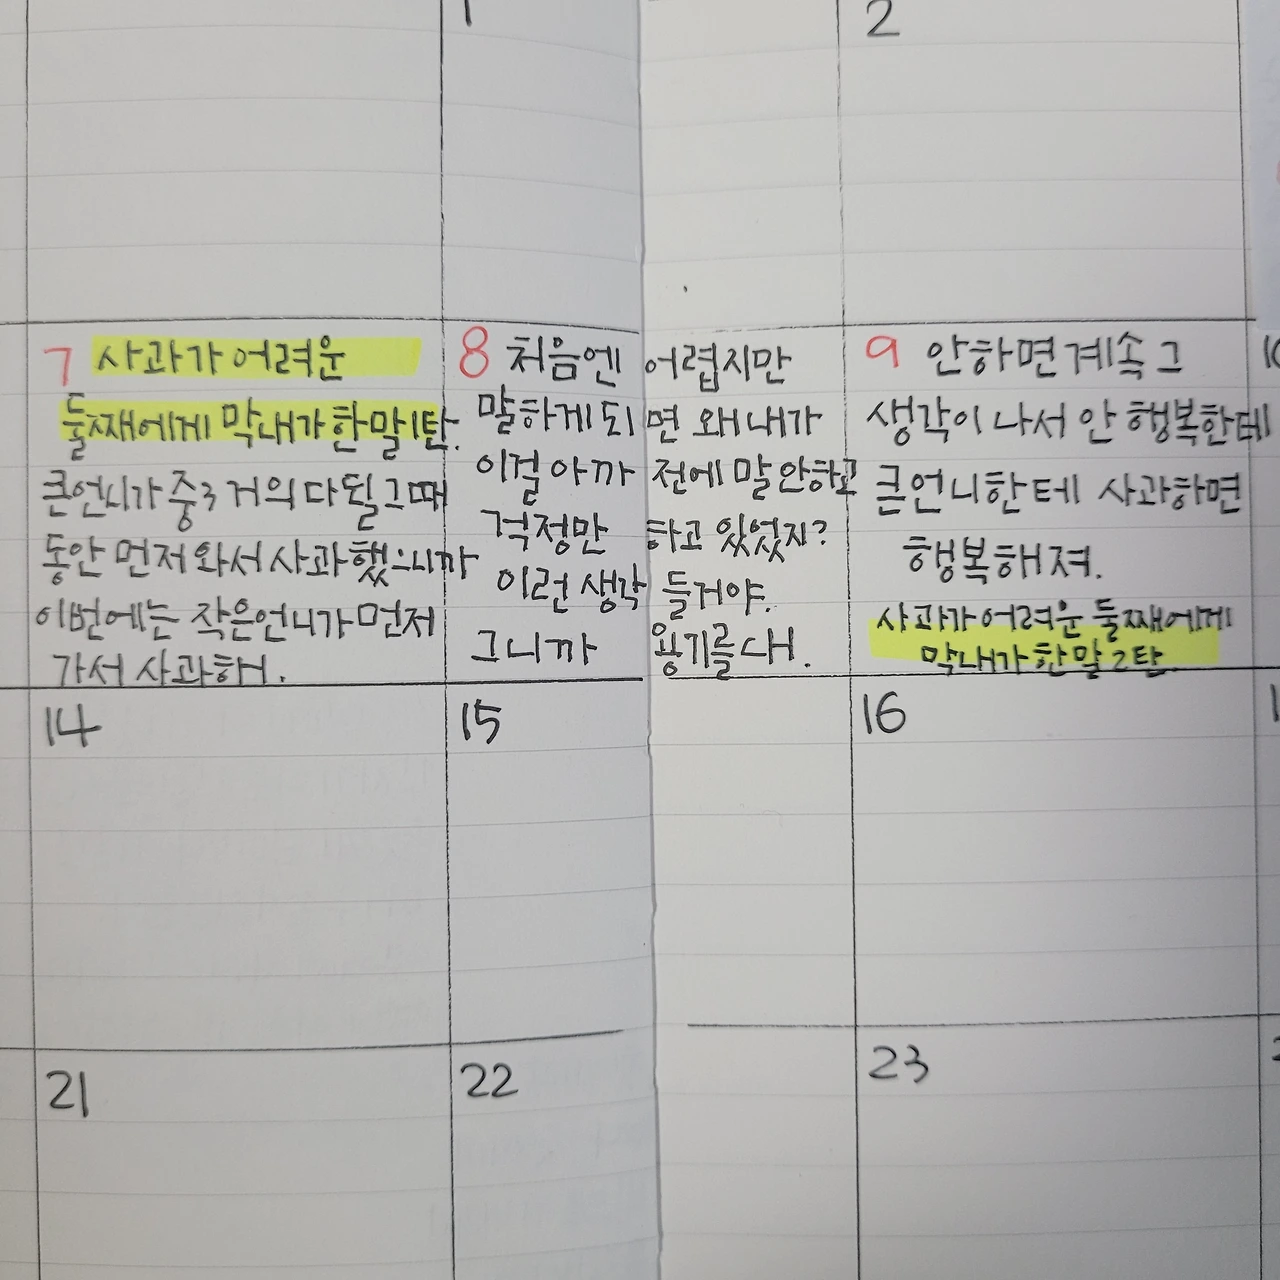 1
2
7 사과가 어려운
둘째에게 막내가 한말 1탄.
큰언니가 중3 거의 다 될 그때
동안 먼저 와서 사과했으니까
이번에는 작은언니가 먼저
가서 사과해.
8 처음엔 어렵지만
말하게 되면 왜 내가
이걸 아까 전에 말 안하고
걱정만 하고 있었지?
이런 생각 들거야.
그니까 용기를 대.
9 안하면 계속 그
생각이 나서 안 행복한테
큰언니한테 사과하면
행복해져.
사과가 어려운 둘째에게
막내가 한 말 2탄
14
15
16
21
22
23